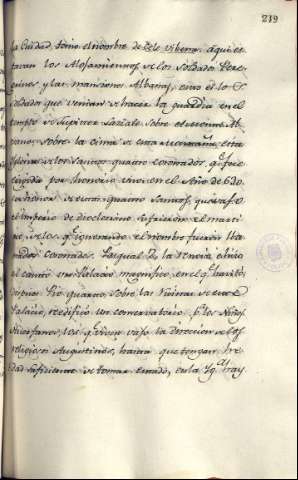 219
la Ciudad, tomo el nombre de Cele viberna. aqui es
tavan los Alojamientos de los Soldados Pere
grinos, y las mansiones Albanas, esto es los
Soldados que venian a hacer la guardia en el
templo de Jupiter sobre el monte Al
bano. Sobre la cima de esta esta la
Iglesia de los Santos quatro coronados, q.e fue
erigida por honorio en el Año de 630.
a honor de estos quatro Santos, que vajo
el imperio de diocleciano sufrieron el marti
rio, y de los q.e ignorando el nombre fueron lla
mados coronados. Pasqual de la
el un Palacio magnifico, en el q.e havitó,
despues Pio quarto sobre las ruinas de este
Palacio, reedificó un conservatorio p.a los Niños
Huerfanos, los q.e viven vajo la direccion de los
religiosos Augustinos, hasta que tengan he
dad suficiente de tomar estado, en la Yg.a hay